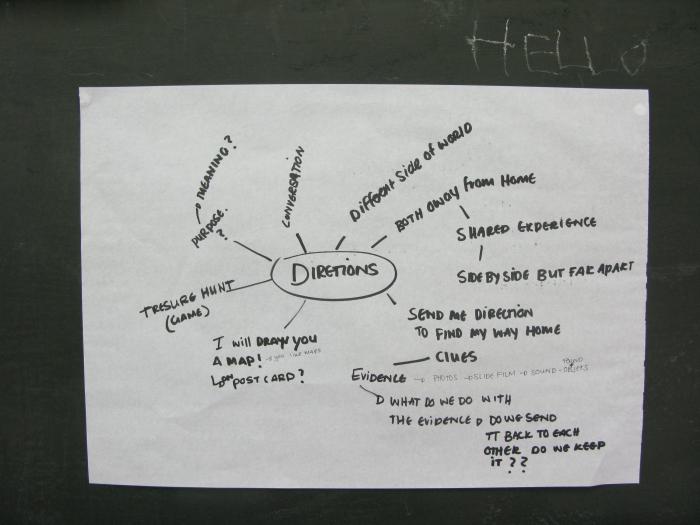 HELLO
PURPOSE.
?
→ MEANING?
CONVERSATION
DIFFERENT SIDE OF WORLD
BOTH AWAY FROM HOME
SHARED EXPERIENCE
SIDE BY SIDE BUT FAR APART
DIRETIONS
TRESURE HUNT
(GAME)
I WILL DRAW YOU
A MAP!
ON POSTCARD?
SEND ME DIRECTION
TO FIND MY WAY HOME
CLUES
EVIDENCE → PHOTOS → SLIDE FILM → SOUND → FOUND OBJECTS
WHAT DO WE DO WITH
THE EVIDENCE DO WE SEND
IT BACK TO EACH
OTHER DO WE KEEP
IT??